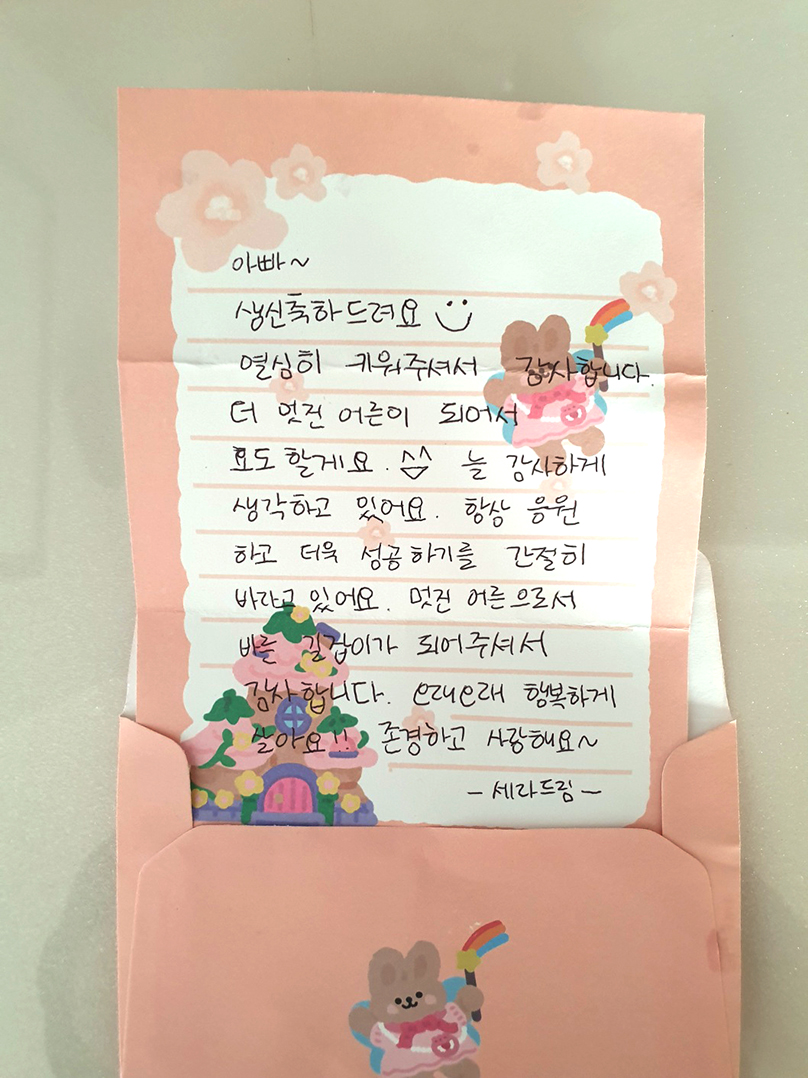 아빠~
생신축하드려요
열심히 키워주셔서 감사합니다.
더 멋진 어른이 되어서
효도할게요. ^^ 늘 감사하게
생각하고 있어요. 항상 응원
하고 더욱 성공하기를 간절히
바라고 있어요. 멋진 어른으로서
바른 길잡이가 되어주셔서
감사합니다. 오래오래 행복하게
살아요!! 존경하고 사랑해요~
- 세라드림 -